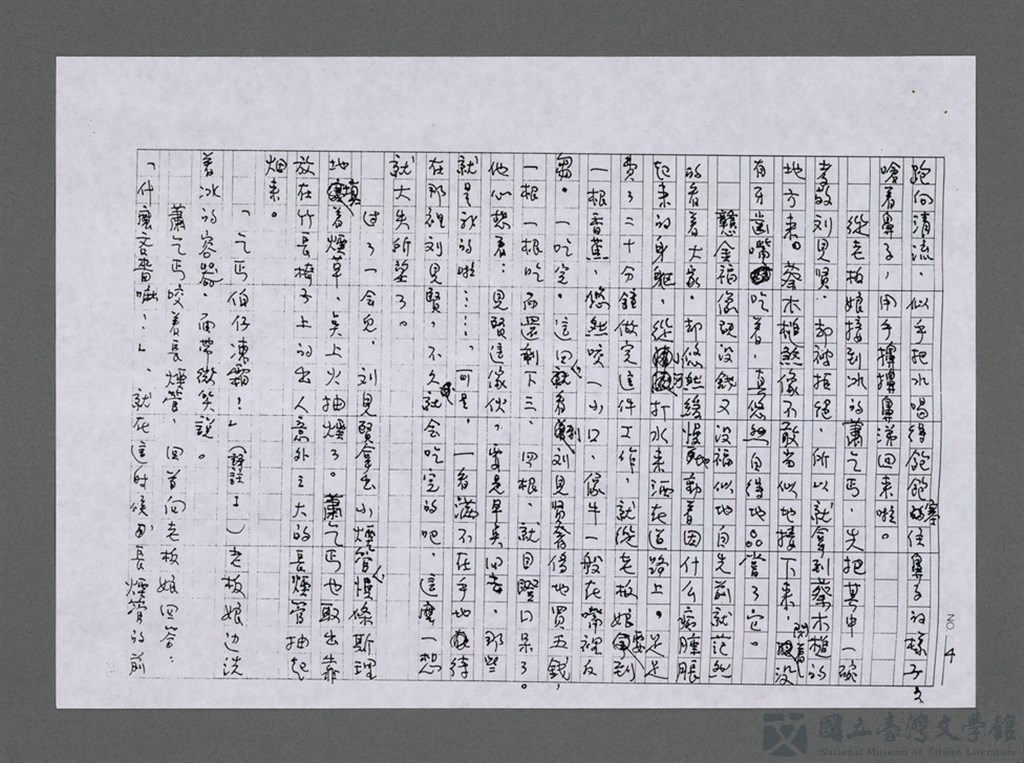 跑向清流，似乎把水喝得飽飽塞住鼻子的樣子又
嗆着鼻子，用手擤擤鼻涕回來啦。
從老板娘接到冰的蕭乞丐，先把其中一碗
孝敬刘見賢，却被拒絕，所以就拿到蔡木槌的
地方來。蔡木槌煞像不敢当似地接下來，閉着没
有牙齒嘴吃着，真悠然自得地品嘗了它。
戇金福像既没錢又没福似地自先前就茫然
的看着大家，却悠然緩慢地動着因什么病腫脹
起來的身軀，從小河打水來洒在道路上。足足
費了二十分鐘做完這件工作，就從老板娘要到
一根香蕉，悠然咬一小口，像牛一般在嘴裡反
芻。一吃完，這回看到刘見賢奢侈地買五錢，
一根一根吃而還剩下三、四根，就目瞪口呆了。
他心想着：見賢這傢伙，要是早臭回去，那些
就是我的啦……，可是，一看滿不在乎地待
在那裡刘見賢，不久就会吃完的吧，這麼一想
就大失所望了。
过了一会兒，刘見賢拿出小煙管慢條斯理
地填着煙草，点上火抽煙了。蕭乞丐也取出靠
放在竹長椅子上的出人意外之大的長煙管抽起
烟來。
「乞丐伯仔凍霜！」（譯註１）老板娘边洗
着冰的容器，面帶微笑說。
蕭乞丐咬着長煙管，回首向老板娘回答：
「什麼吝嗇嘛！」，就在這时候，由長煙管的前
30
4
國立臺灣文學館
National Museum of Taiwan Literature